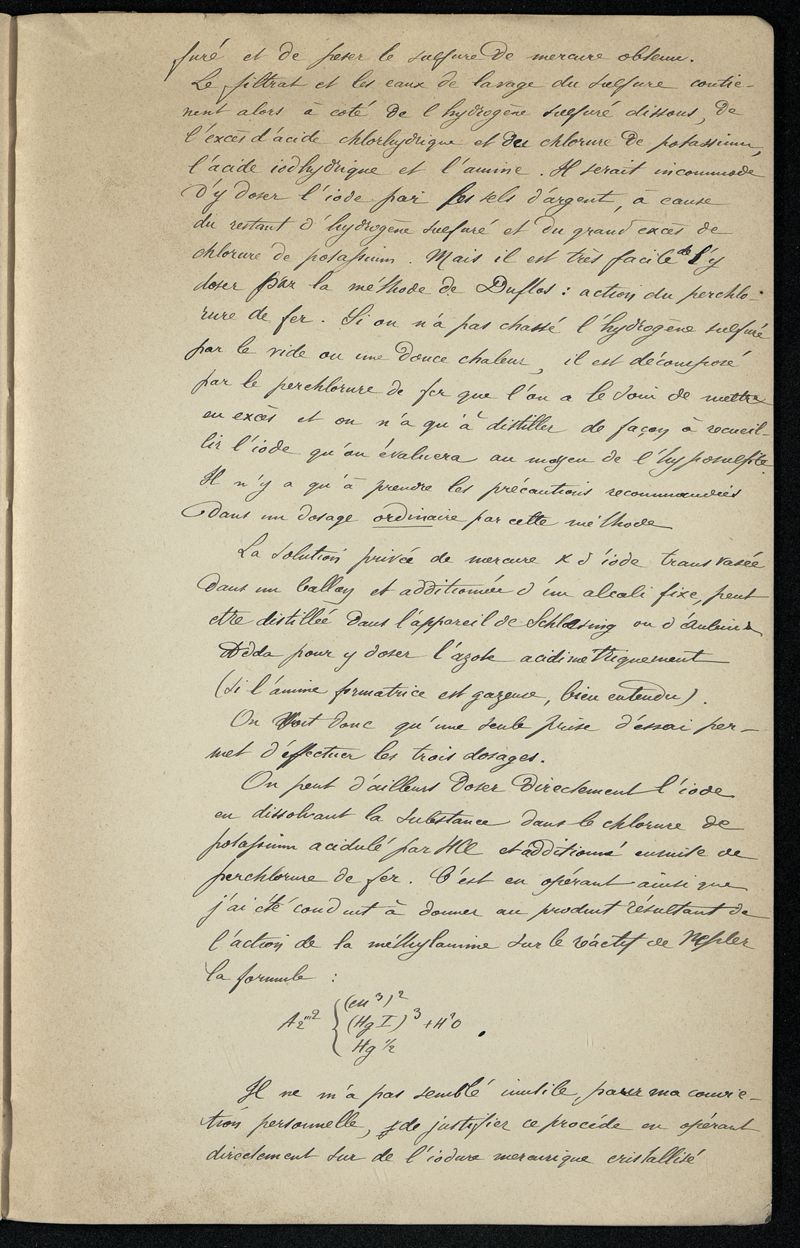 furé et de peser le sulfure de mercure obtenu.
Le filtrat et les eaux de lavage du sulfure contie-
nent alors à coté de l'hydrogène sulfuré dissous, de
l'excès d'acide chlorhydrique et du chlorure de potassium,
l'acide iodhydrique et l'amine. Il serait incommode
d'y doser l'iode par les sels d'argent, à cause
du restant d'hydrogène sulfuré et du grand excès de
chlorure de potassium. Mais il est très facile de l'y
doser par la méthode de Duflos : action du perchlo-
rure de fer. Si on n'a pas chassé l'hydrogène sulfuré
par le vide ou une douce chaleur, il est décomposé
par le perchlorure de fer que l'on a le soin de mettre
en excès et on n'a qu'à distiller de façon à recueil-
lir l'iode qu'on évaluera au moyen de l'hyposulfite.
Il n'y a qu'à prendre les précautions recommandées
dans un dosage ordinaire par cette méthode
La solution privée de mercure & d'iode transvasée
dans un ballon et additionnée d'un alcali fixe, peut
etre distillée dans l'appareil de Schlœsing ou d'Aubin &
Adda pour y doser l'azote acidimétriquement
(si l'amine formatrice est gazeuse, bien entendu).
On voit donc qu'une seule prise d'essai per-
met d'effectuer les trois dosages.
On peut d'ailleurs doser directement l'iode
en dissolvant la substance dans le chlorure de
potassium acidulé par HCl et additionné ensuite de
perchlorure de fer. C'est en opérant ainsi que
j'ai été conduit à donner au produit résultant de
l'action de la méthylamine sur le réactif de Nessler
la formule :
Az'''² { (CH³)²
(Hg I)³ + H²O .
Hg ½
Il ne m'a pas semblé inutile, pour ma convic-
tion personnelle, de justifier ce procédé en opérant
directement sur de l'iodure mercurique cristallisé